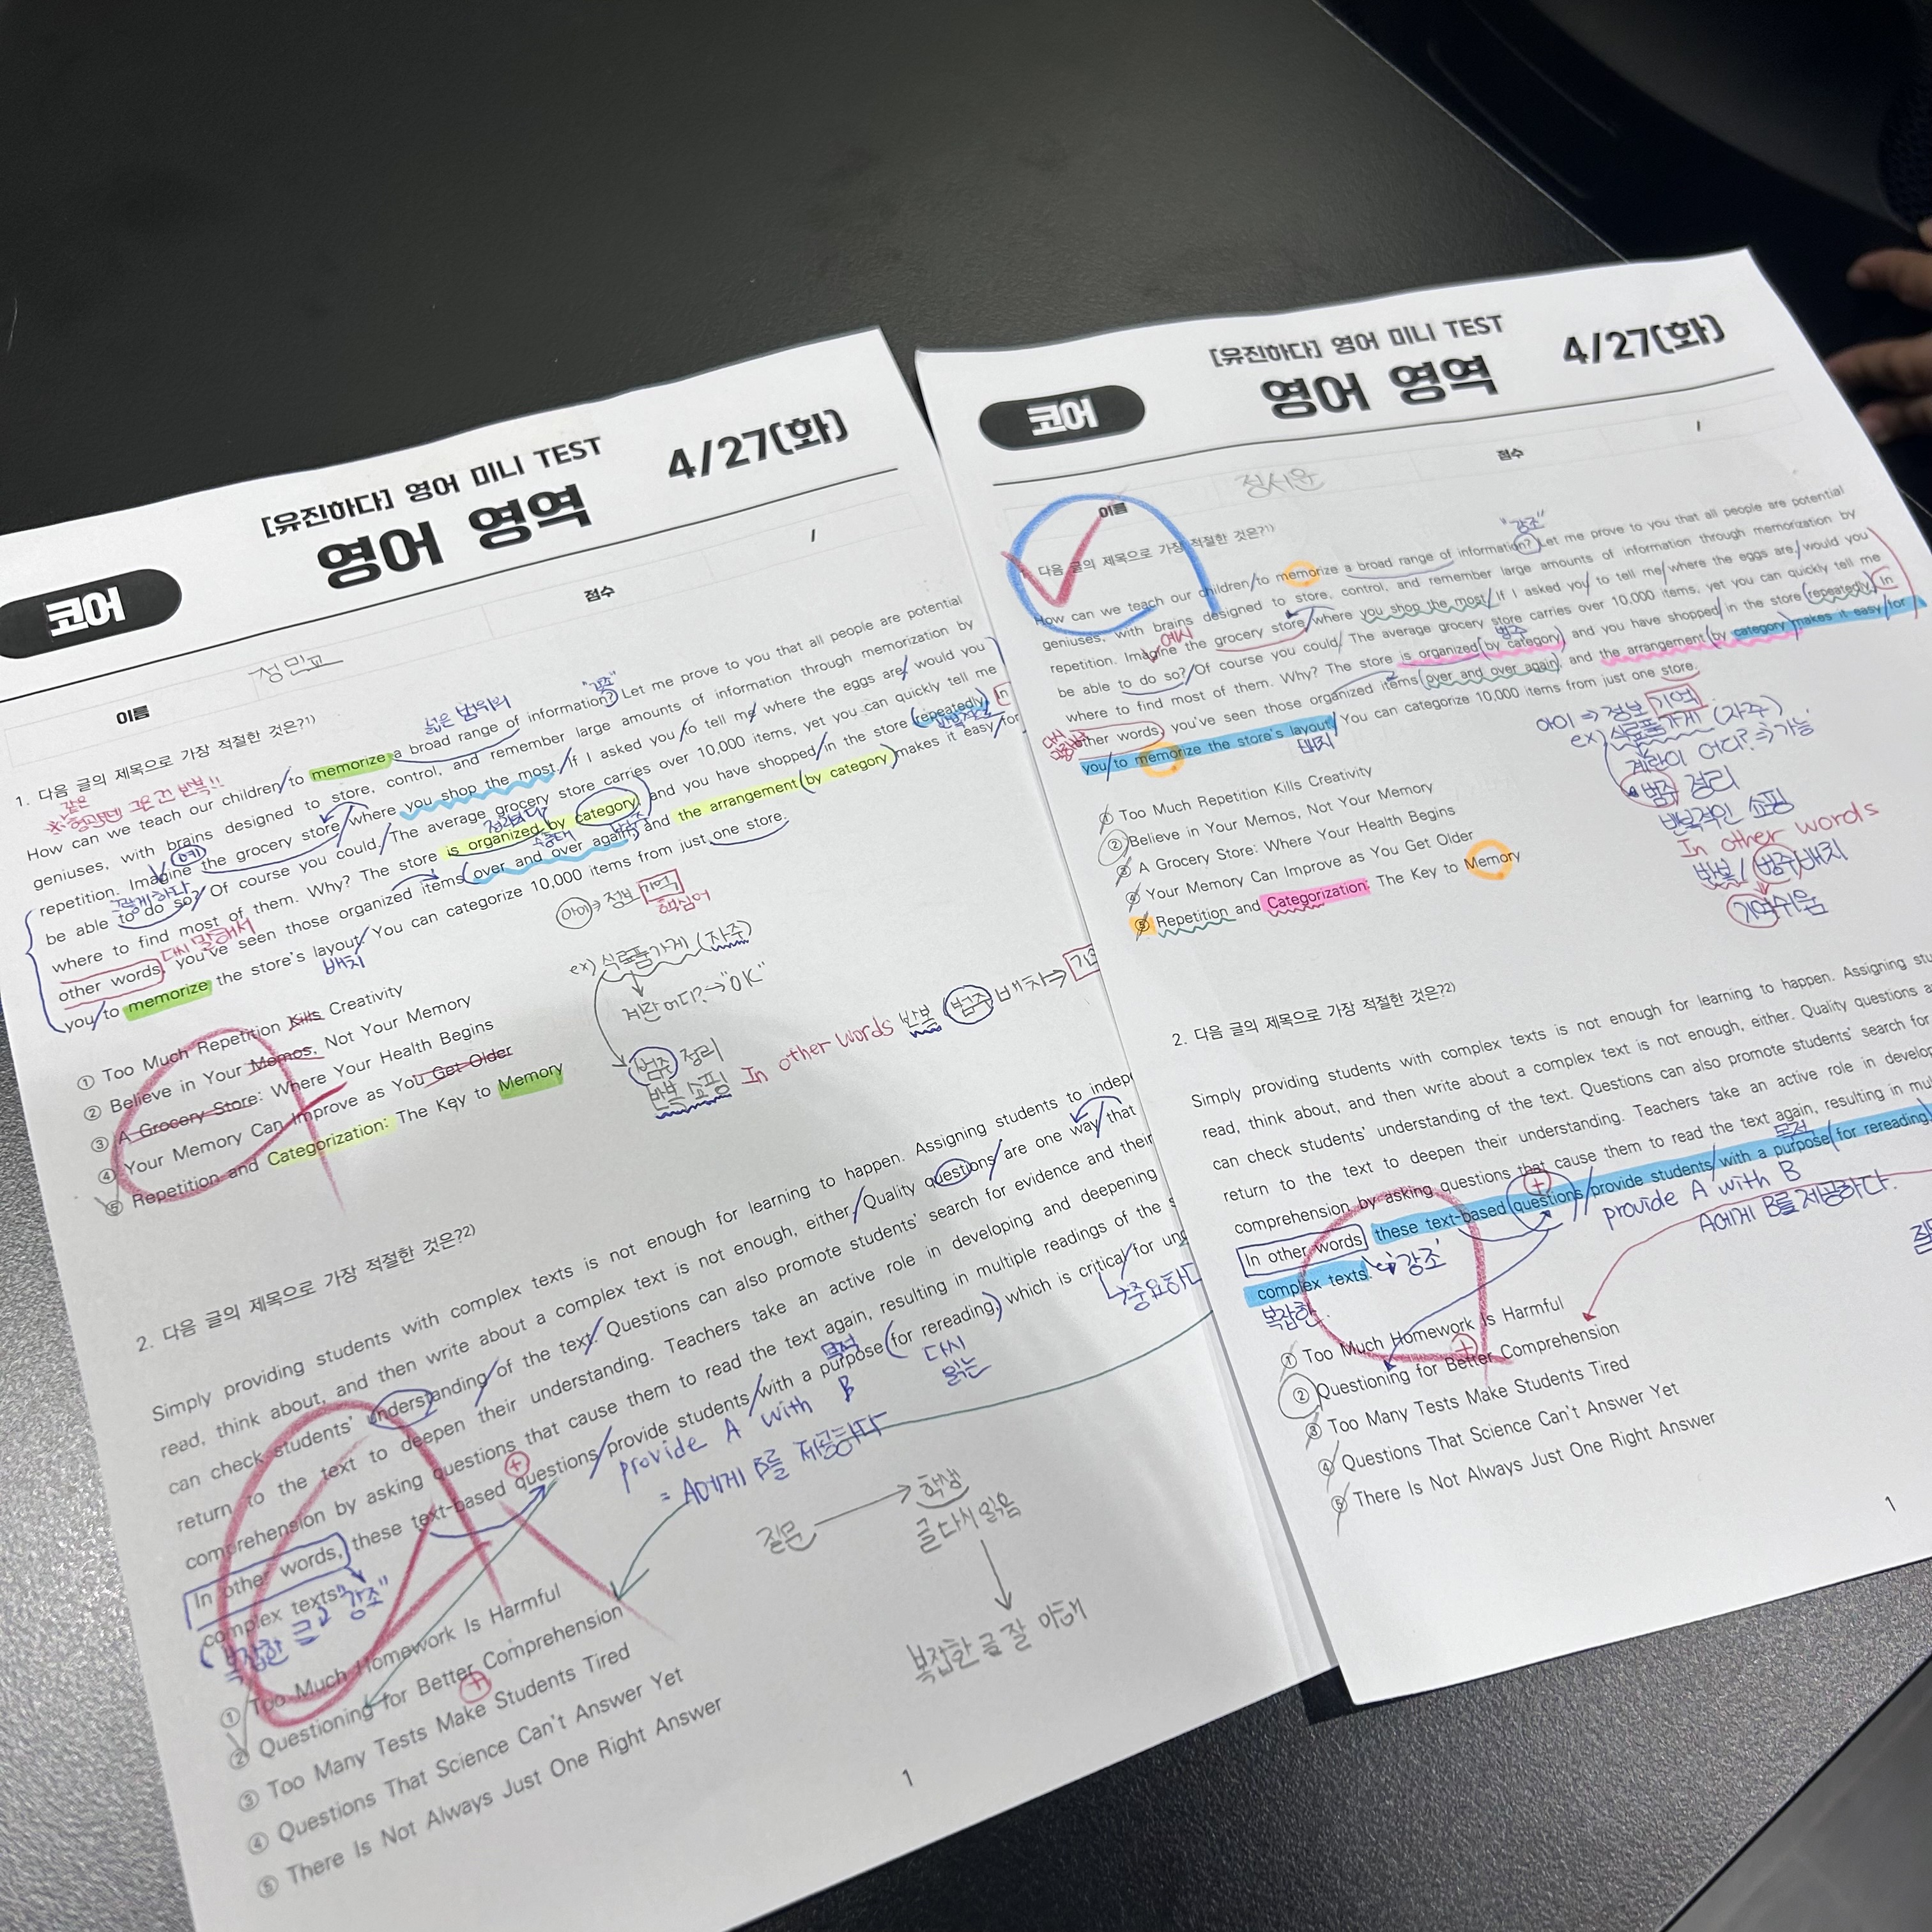 [유진하다] 영어 미니 TEST
코어
영어 영역
4/27(화)
이름
정민교
점수
/
1. 다음 글의 제목으로 가장 적절한 것은?1)
같은
※형광펜 그은 건 반복!!
넓은 범위의
"강조"
How can we teach our children/to memorize a broad range of information? Let me prove to you that all people are potential
geniuses, with brains designed to store, control, and remember large amounts of information through memorization by
repetition. Imagine the grocery store/where you shop the most./If I asked you/to tell me/where the eggs are/would you
be able to do so?/Of course you could./The average grocery store carries over 10,000 items, yet you can quickly tell me
where to find most of them. Why? The store is organized by category, and you have shopped/in the store (repeatedly) In
other words, you've seen those organized items (over and over again), and the arrangement (by category) makes it easy/for
you/to memorize the store's layout./You can categorize 10,000 items from just one store.
다시 말해서
배치
① Too Much Repetition Kills Creativity
② Believe in Your Memos, Not Your Memory
③ A Grocery Store: Where Your Health Begins
④ Your Memory Can Improve as You Get Older
⑤ Repetition and Categorization: The Key to Memory
아이⇒정보 기억
핵심어
ex) 식료품가게 (자주)
계란 어디?→"OK"
범주 정리
반복 쇼핑
In other words 반복 / 범주 배치⇒
2. 다음 글의 제목으로 가장 적절한 것은?2)
Simply providing students with complex texts is not enough for learning to happen. Assigning students to
read, think about, and then write about a complex text is not enough, either./Quality questions/are one way/that
can check students' understanding/of the text./Questions can also promote students' search for evidence and their
return to the text to deepen their understanding. Teachers take an active role in developing and deepening
comprehension by asking questions that cause them to read the text again, resulting in multiple readings of the
In other words, these text-based questions/provide students/with a purpose (for rereading,) which is critical/for
complex texts.
"강조"
(복잡한 글)
목적
다시
읽는
↳중요하다
provide A with B
= A에게 B를 제공하다
질문 → 학생
글 다시 읽음
복잡한 글 잘 이해
① Too Much Homework Is Harmful
② Questioning for Better Comprehension
③ Too Many Tests Make Students Tired
④ Questions That Science Can't Answer Yet
⑤ There Is Not Always Just One Right Answer
1
[유진하다] 영어 미니 TEST
코어
영어 영역
4/27(화)
이름
정서윤
점수
/
다음 글의 제목으로 가장 적절한 것은?1)
"강조"
How can we teach our children/to memorize a broad range of information? Let me prove to you that all people are potential
geniuses, with brains designed to store, control, and remember large amounts of information through memorization by
repetition. Imagine the grocery store/where you shop the most./If I asked you/to tell me/where the eggs are/would you
be able to do so?/Of course you could/The average grocery store carries over 10,000 items, yet you can quickly tell me
where to find most of them. Why? The store is organized (by category) and you have shopped/in the store (repeatedly) In
other words, you've seen those organized items (over and over again), and the arrangement (by category) makes it easy/for
you/to memorize the store's layout/You can categorize 10,000 items from just one store.
예시
범주
배치
① Too Much Repetition Kills Creativity
② Believe in Your Memos, Not Your Memory
③ A Grocery Store: Where Your Health Begins
④ Your Memory Can Improve as You Get Older
⑤ Repetition and Categorization: The Key to Memory
아이 ⇒ 정보 기억
ex) 식료품가게 (자주)
계란이 어디?⇒가능
범주 정리
반복적인 쇼핑
In other words
반복/범주배치
기억쉬움
2. 다음 글의 제목으로 가장 적절한 것은?2)
Simply providing students with complex texts is not enough for learning to happen. Assigning
read, think about, and then write about a complex text is not enough, either. Quality questions
can check students' understanding of the text. Questions can also promote students' search for
return to the text to deepen their understanding. Teachers take an active role in
comprehension by asking questions that cause them to read the text again, resulting in
In other words, these text-based questions/provide students/with a purpose (for rereading,)
complex texts.
"강조"
복잡한
목적
provide A with B
A에게 B를 제공하다.
① Too Much Homework Is Harmful
② Questioning for Better Comprehension
③ Too Many Tests Make Students Tired
④ Questions That Science Can't Answer Yet
⑤ There Is Not Always Just One Right Answer
1